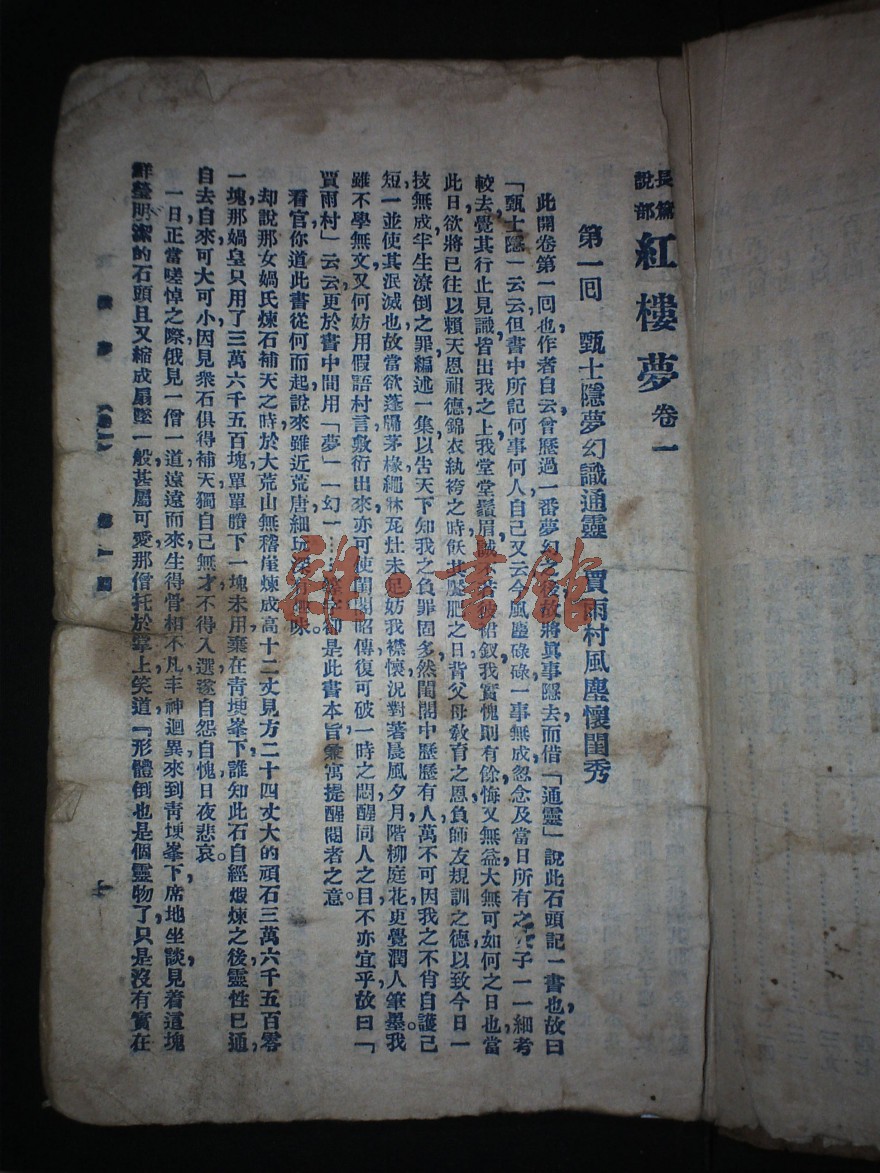 長篇
說部
紅樓夢 卷一
第一回 甄士隱夢幻識通靈 賈雨村風塵懷閨秀
此開卷第一回也,作者自云曾歷過一番夢幻之後,故將眞事隱去而借「通靈」說此石頭記一書也,故曰
「甄士隱」云云但書中所記何事何人自己又云今風塵碌碌一事無成忽念及當日所有之女子一一細考
較去覺其行止見識皆出我之上我堂堂鬚眉誠不若彼裙釵我實愧則有餘悔又無益大無可如何之日也當
此日欲將已往以賴天恩祖德錦衣紈袴之時飫甘饜肥之日背父母敎育之恩負師友規訓之德以致今日一
技無成半生潦倒之罪編述一集以告天下知我之負罪固多然閨閣中歷歷有人萬不可因我之不肖自護己
短一並使其泯滅也故當欲蓬牖茅椽繩牀瓦灶未足妨我襟懷況對著晨風夕月階柳庭花更覺潤人筆墨我
雖不學無文又何妨用假語村言敷衍出來亦可使閨閣昭傳復可破一時之悶醒同人之目不亦宜乎故曰「
賈雨村」云云更於書中間用「夢」「幻」…等字卻是此書本旨兼寓提醒閱者之意。
看官你道此書從何而起說來雖近荒唐細玩頗有趣味。
却說那女媧氏煉石補天之時於大荒山無稽崖煉成高十二丈見方二十四丈大的頑石三萬六千五百零
一塊那媧皇只用了三萬六千五百塊單單賸下一塊未用棄在靑埂峯下誰知此石自經煅煉之後靈性已通
自去自來可大可小因見衆石俱得補天獨自己無才不得入選遂自怨自愧日夜悲哀。
一日正當嗟悼之際俄見一僧一道遠遠而來生得骨相不凡丰神迥異來到靑埂峯下席地坐談見着這塊
鮮瑩明潔的石頭且又縮成扇墜一般甚屬可愛那僧托於掌上笑道『形體倒也是個靈物了只是沒有實在
樓夢 (卷一) 第一回
雜·書館